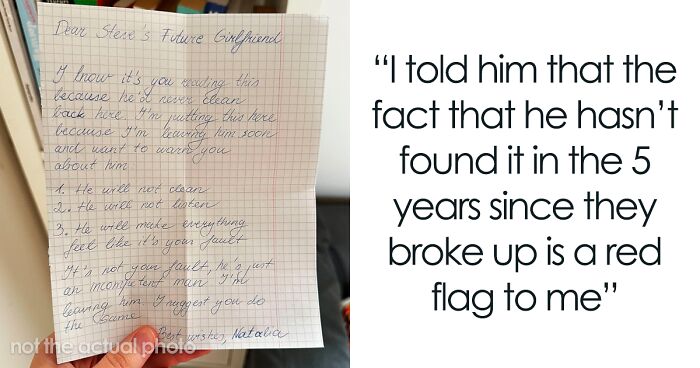 Dear Steve's Future Girlfriend
I know it's you reading this
because he'd never clean
back here. I'm putting this here
because I'm leaving him soon
and want to warn you
about him
1. He will not clean
2. He will not listen
3. He will make everything
feel like it's your fault
It's not your fault, he's just
an incompetent man I'm
leaving him. I suggest you do
the same
Best wishes, Natalia
not the actual photo
“I told him that the
fact that he hasn’t
found it in the 5
years since they
broke up is a red
flag to me”